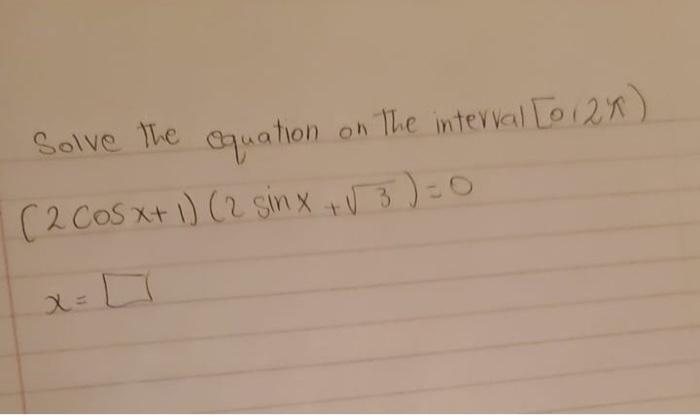 Solve The equation on The interval [0,2π)
(2 cos x + 1) (2 sin x + √3) = 0
x = □